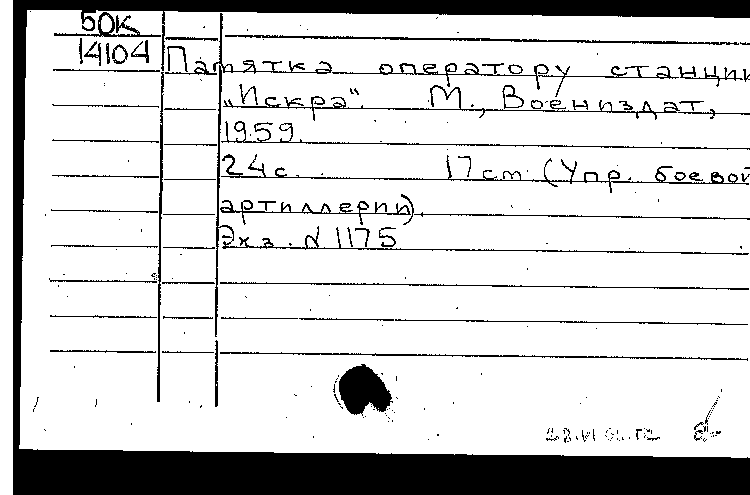 50К
14104 Памятка оператору станции
„Искра“. М., Воениздат,
1959.
24 с. 17 cm (Упр. боевой
артиллерии).
Экз. N 1175